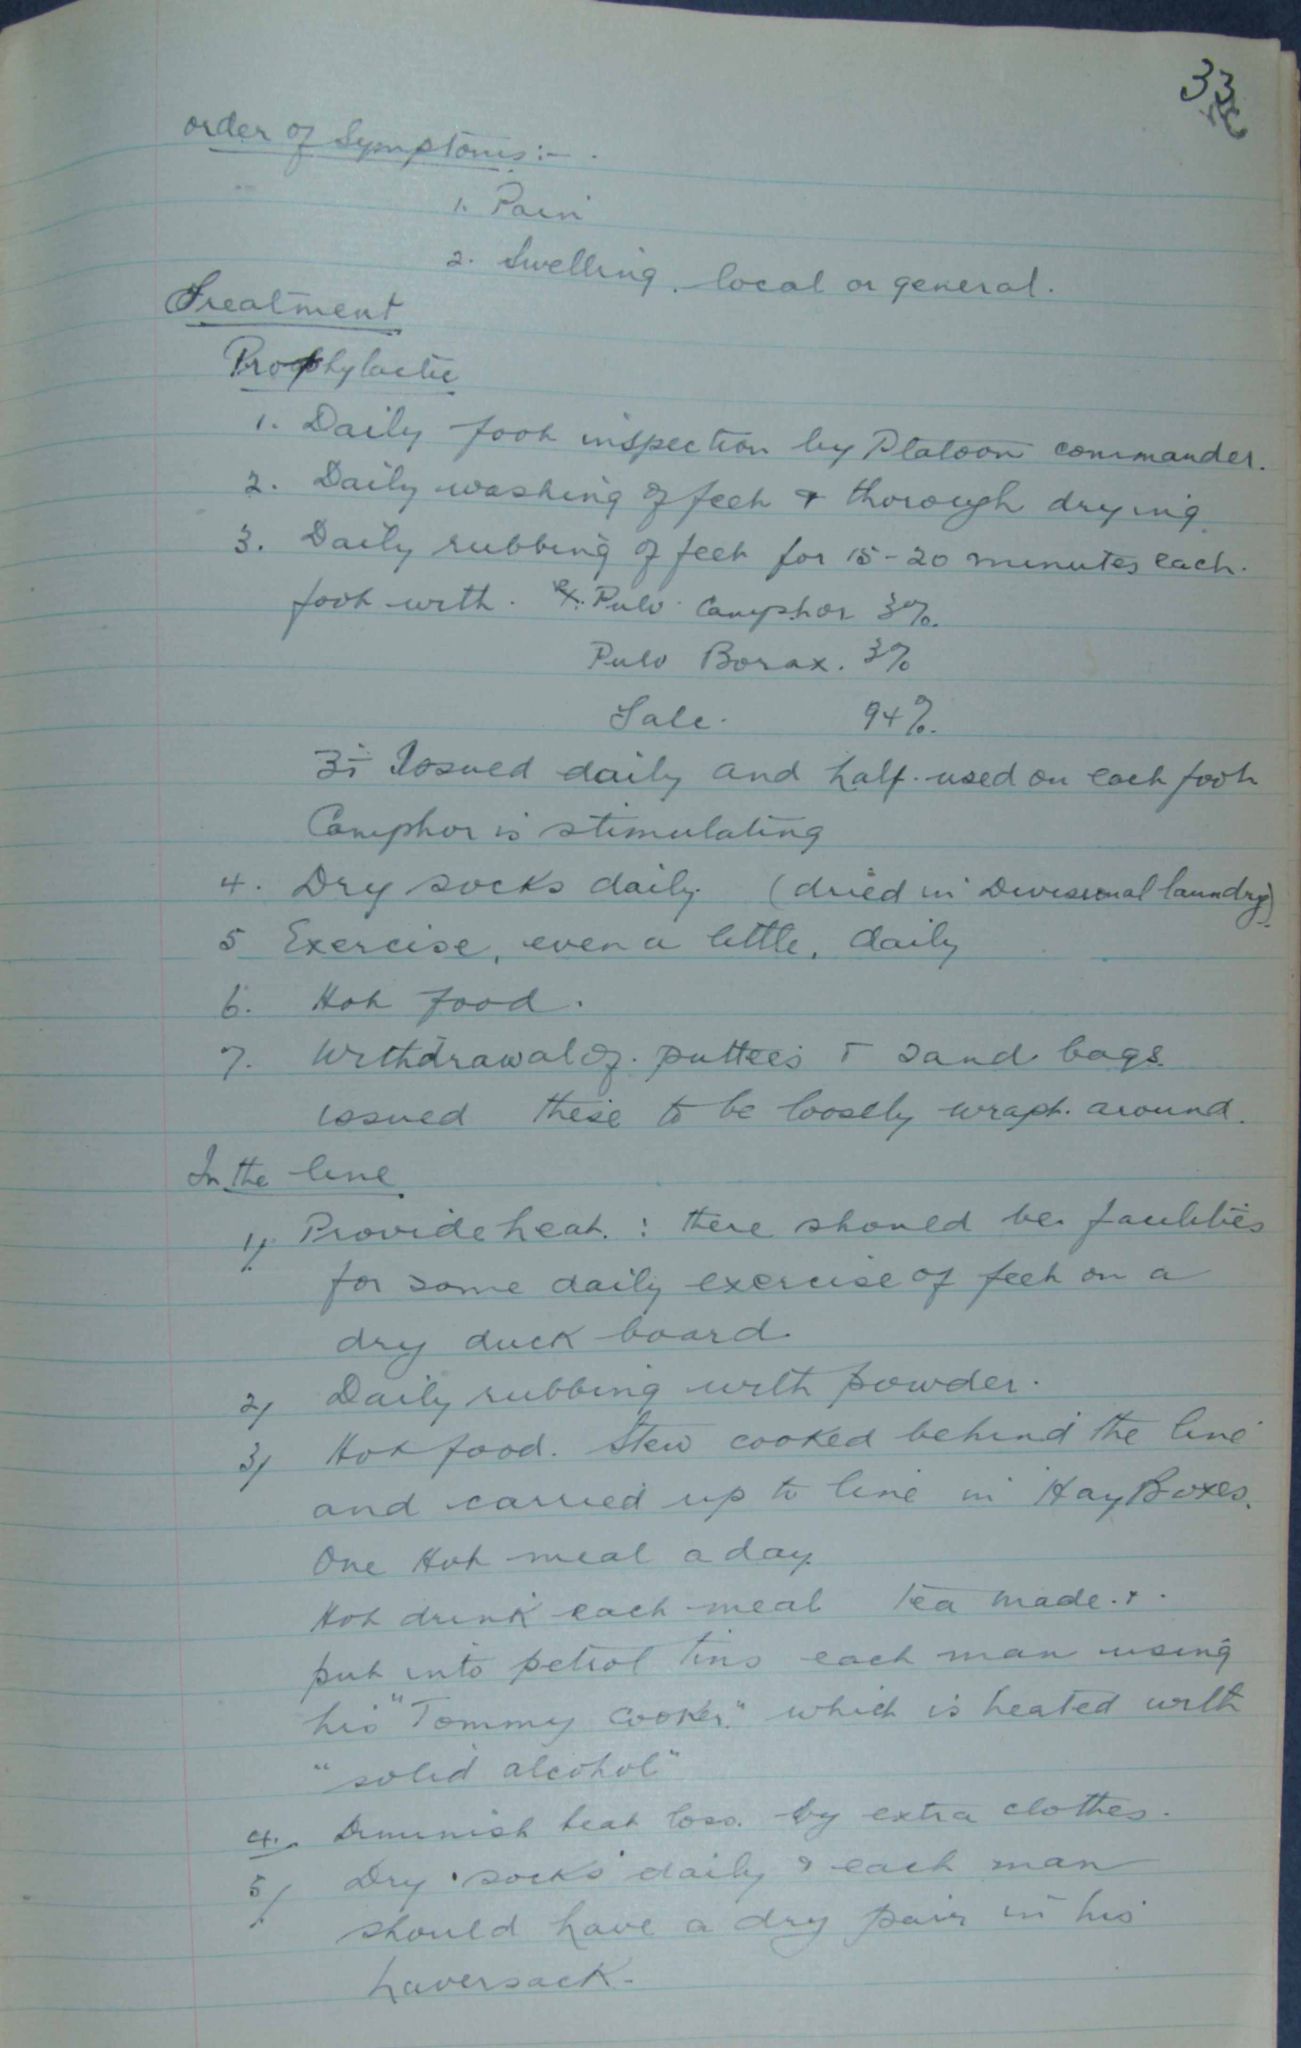 33
order of Symptoms:-
1. Pain
2. Swelling. local or general.
Treatment
Prophylactic
1. Daily foot inspection by Platoon commander.
2. Daily washing of feet & thorough drying.
3. Daily rubbing of feet for 15-20 minutes each
foot with. Rx. Pulv Camphor 3%.
Pulv Borax. 3%
Talc. 94%.
ʒi Issued daily and half used on each foot
Camphor is stimulating
4. Dry socks daily. (dried in Divisional laundry).
5 Exercise, even a little, daily
6. Hot food.
7. Withdrawal of puttees & sand bags
issued these to be loosely wrapt. around.
In the line.
1/. Provide heat. : there should be facilities
for some daily exercise of feet on a
dry duck board.
2/ Daily rubbing with powder.
3/ Hot food. Stew cooked behind the line
and carried up to line in Hay Boxes.
One Hot meal a day.
Hot drink each meal tea made. &
put into petrol tins each man using
his "Tommy Cooker" which is heated with
"solid alcohol"
4. Diminish heat loss. by extra clothes.
5/ Dry socks daily & each man
should have a dry pair in his
haversack.